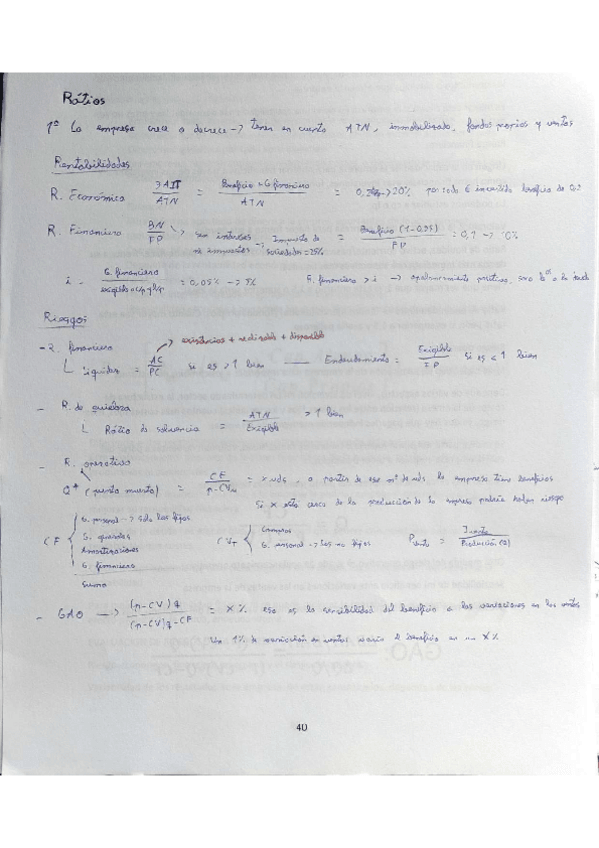 Rátios
1º La empresa crece o decrece -> tener en cuenta ATN, inmobilizado, fondos propios y ventas
Rentabilidades
R. Económica BAIT / ATN = Beneficio + G financiero / ATN = 20% por cada € invertido beneficio de 0,2
R. Financiera BN / FP -> sin intereses ni impuestos -> Impuesto de sociedades = 25% = Beneficio (1-0,25) / FP = 0,1 -> 10%
i = G. financiero / exigible = 0,05% -> 5% R. financiera > i -> apalancamiento positivo,
Riesgos
existencias + realizable + disponible
- R. financiero
L liquidez = AC / PC si es > 1 bien — Endeudamiento = Exigible / FP si es < 1 bien
- R. de quiebra
L Rátio de solvencia = ATN / Exigible > 1 bien
- R. operativo
Q* (punto muerto) = CF / p-CVu = x uds, a partir de ese nº de uds, la empresa tiene beneficios
Si x está cerca de la producción de la empresa podría haber riesgo
CF { G. personal -> Sólo los fijos
G. generales
Amortizaciones
G. financiero
Suma
CVT { Compras
G. personal -> Los no fijos
Pventa = Iventa / Producción (Q)
- GAO -> (p-CV)q / (p-CV)q-CF = X% esa es la sensibilidad del beneficio a las variaciones en las ventas
Un 1% de variación en ventas varía el beneficio en un X%
40